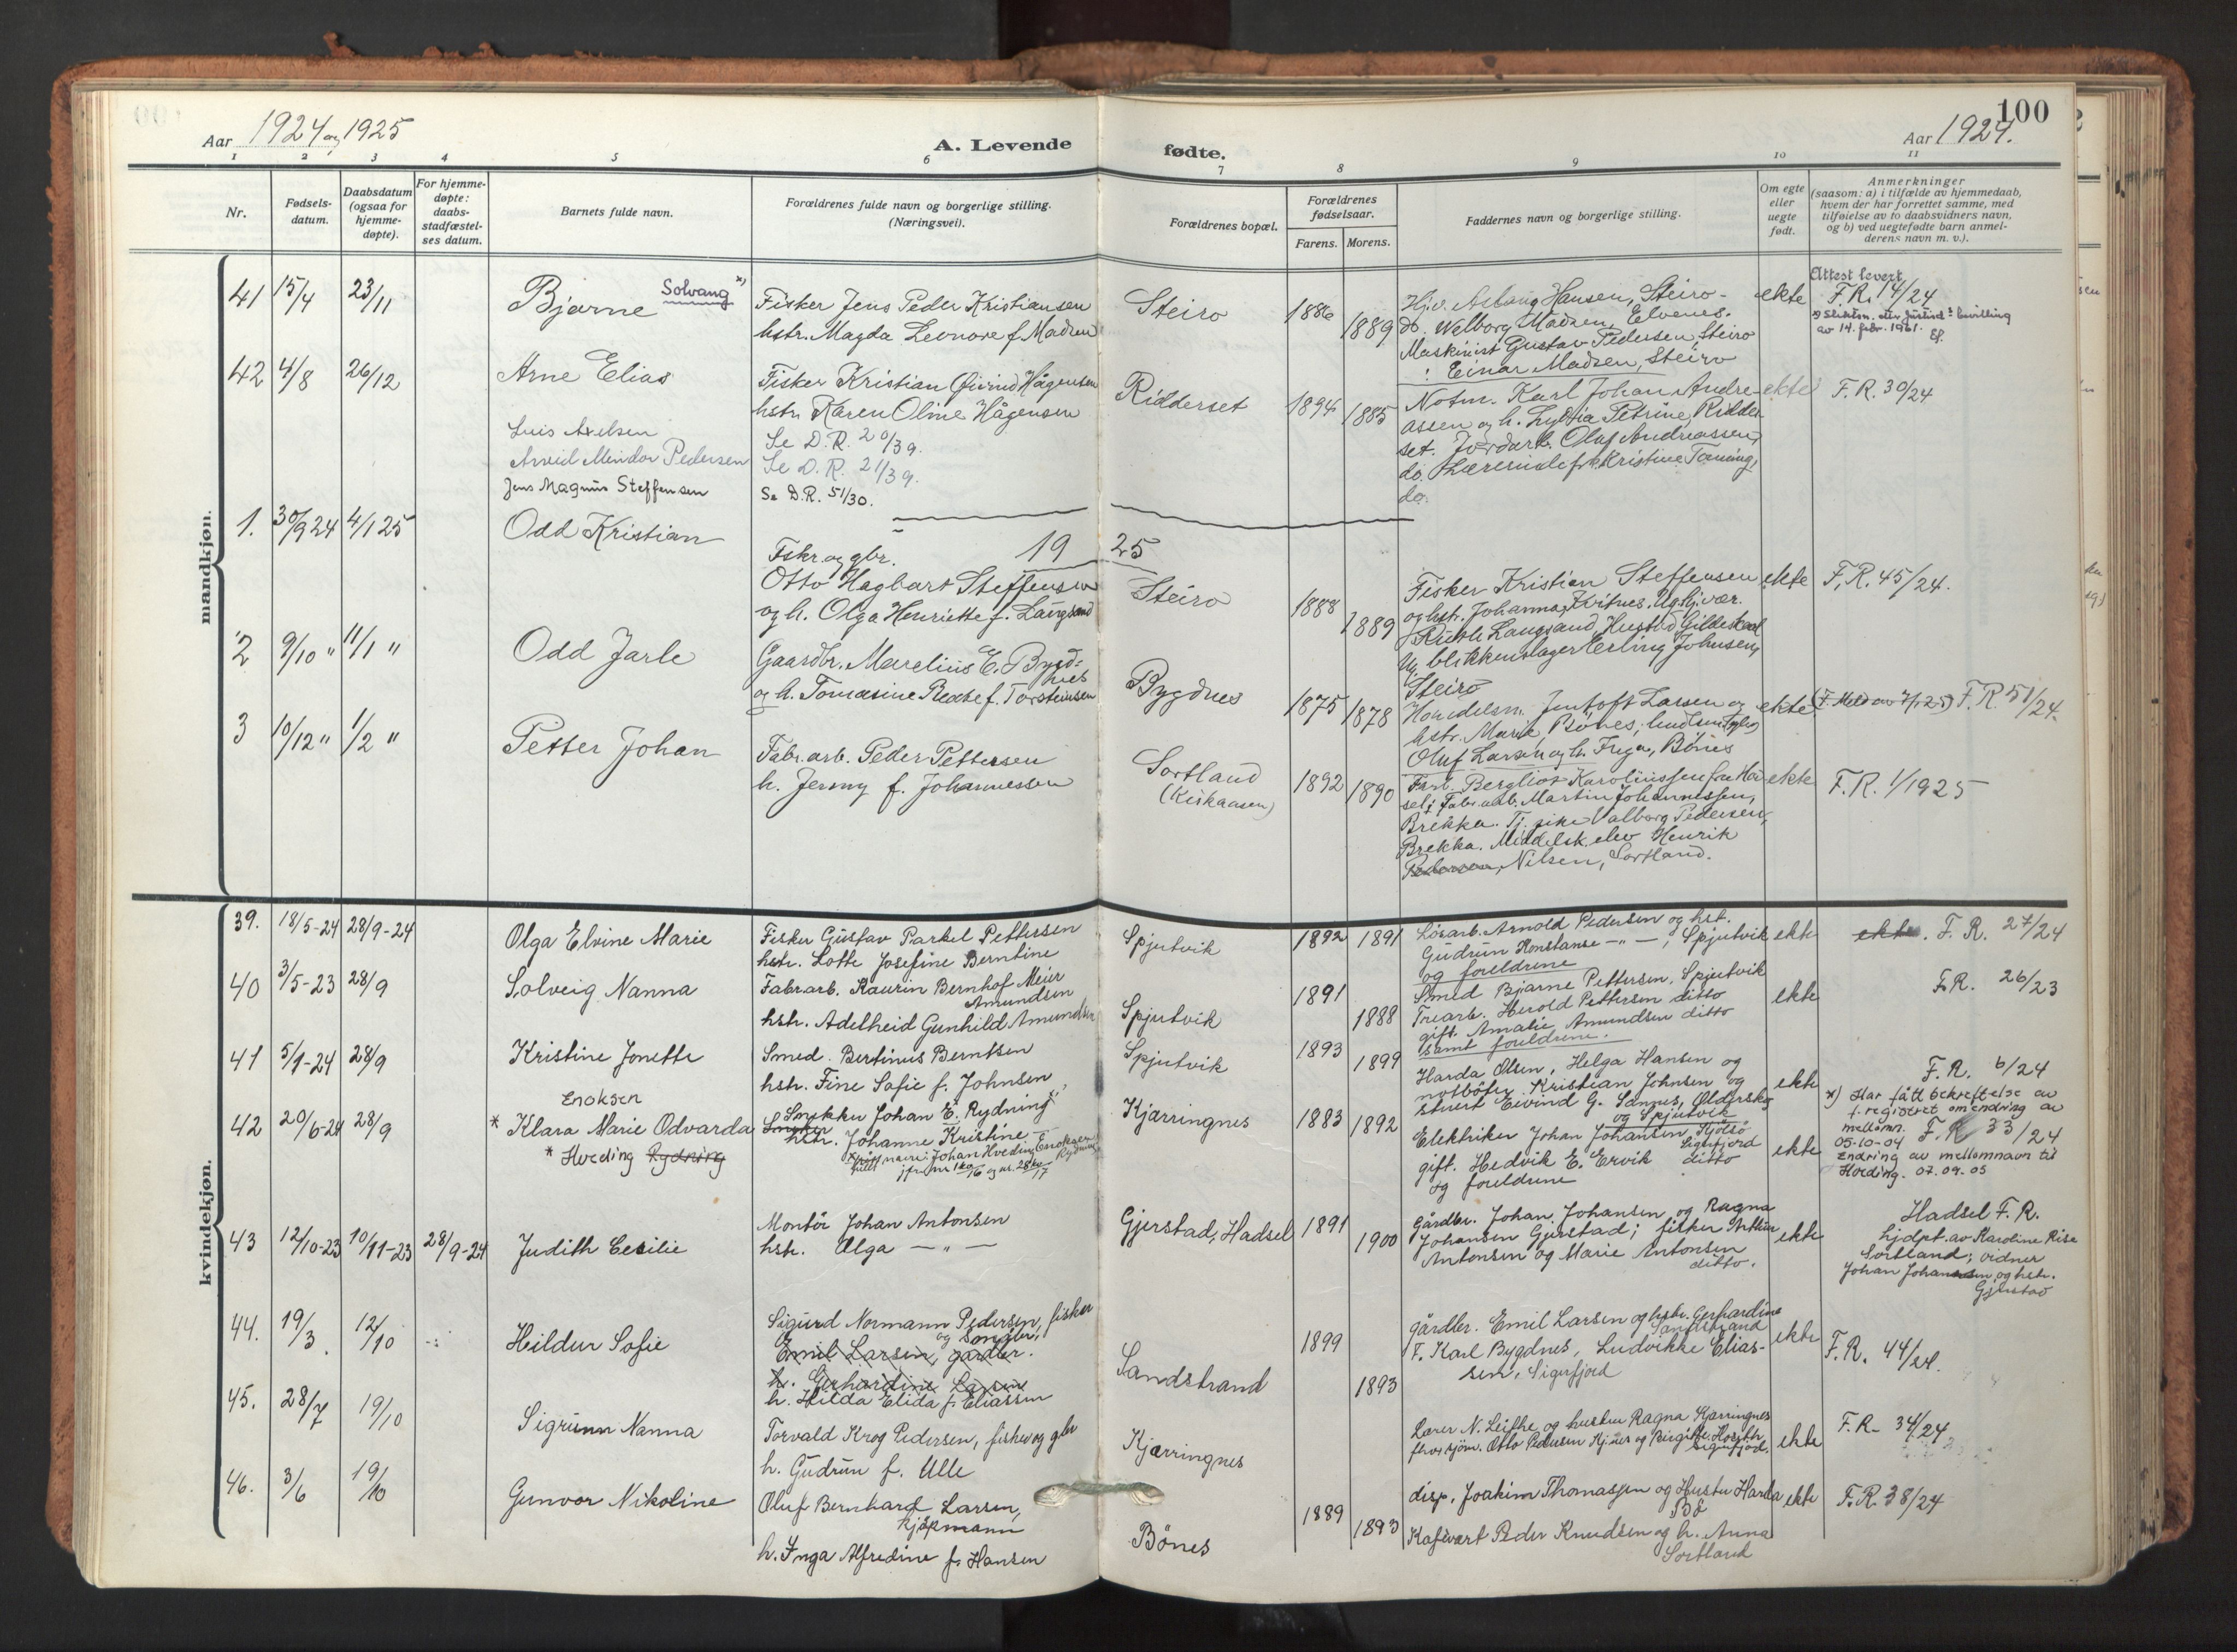 100
Aar 1924 og 1925
A. Levende fødte.
Aar 1924.
1 2 3 4 5 6 7 8 9 10 11
Nr.
Fødsels-
datum.
Daabsdatum
(ogsaa for
hjemme-
døpte).
For hjemme-
døpte:
daabs-
stadfæstel-
ses datum.
Barnets fulde navn.
Forældrenes fulde navn og borgerlige stilling.
(Næringsvei).
Forældrenes bopæl.
Forældrenes
fødselsaar.
Farens. Morens.
Faddernes navn og borgerlige stilling.
Om egte
eller
uegte
født.
Anmerkninger
(saasom: a) i tilfælde av hjemmedaab,
hvem der har forrettet samme, med
tilføielse av to daabsvidners navn,
og b) ved uegtefødte barn anmel-
derens navn m. v.).
mandkjøn.
41 15/4 23/11
Bjarne Solvang *)
Fisker Jens Peder Kristiansen
hstr. Magda Leonore f. Madsen
Steiro
1886 1889
Hjv. Aslaug Hansen, Steiro -
do. Valborg Madsen, Elvenes.
Maskinist Gustav Pedersen, Steiro
Einar Madsen, Steiro
ekte
Attest levert
F.R. 14/24
av 14. febr. 1961.
42 4/8 26/12
Arne Elias
Fisker Kristian Øivind Hågensen
hstr. Karen Oline Hågensen
Ridderset
1894 1885
Notm. Karl Johan Andre-
assen og h. Lydia Petrine, Ridder-
set. Jordarb. Oluf Andreassen,
do. Kristine
do.
ekte
F.R. 30/24
Luis Axelsen Se D.R. 20/39.
Arvid Mindor Pedersen Se D.R. 21/39.
Jens Magnus Steffensen Se D.R. 51/30.
1925
1. 30/9 24 4/1 25
Odd Kristian
Fskr og gbr.
Otto Hagbart Steffensen
og h. Olga Henriette f. Langsand
Steiro
1888 1889
Fisker Kristian Steffensen
og hstr. Johanna, Kvitnes. Ug. hj. vær.
Ruth Langsand, Hustad, Gildeskaal
Ug. blikkenslager Erling Johnsen,
Steiro
ekte
F.R. 45/24.
2 9/10 " 11/1 "
Odd Jarle
Gaardbr. Marelius E. Bygd-
nes
og h. Tomasine Beate f. Torsteinsen
Bygdnes
1875 1878
Handelsm. Jentoft Larsen og
hstr. Marie, Bönes,
Oluf Larsen og h. Inga, Bönes
ekte
F.R. 51/24.
3 10/12 " 1/2 "
Petter Johan
Fabr.arb. Peder Pettersen
h. Jenny f. Johannessen
Sortland
1892 1890
Bergliot Karoliussen
Fabr.arb. Martin Johannessen,
Brekka. Tj. pike Valborg Pedersen,
Brekka. Middelsk. elev Henrik
Pedersen, Nilsen, Sortland.
ekte
F.R. 1/1925
kvindekjøn.
39. 18/5-24 28/9-24
Olga Elvine Marie
Fisker Gustav Parkel Pettersen
hstr. Lotte Josefine Berntine
Spjutvik
1892 1891
Lösarb. Arnold Pedersen og hst.
Gudrun Konstanse - " - , Spjutvik
og foreldrene
ekte
ekte. F.R. 27/24
40 3/5-23 28/9
Solveig Nanna
Fabr.arb. Kaurin Bernhof Meier
Amundsen
hstr. Adelheid Gunhild Amundsen
Spjutvik
1891 1888
Smed Bjarne Pettersen, Spjutvik
Trearb. Herold Pettersen ditto
gift. Amalie Amundsen ditto
samt foreldrene.
ekte
F.R. 26/23
41 5/1-24 28/9
Kristine Jonette
Smed. Bertinus Berntsen
hstr. Fine Sofie f. Johnsen
Spjutvik
1893 1899
Harda Olsen, Helga Hansen og
notböter Kristian Johnsen og
stuert Eivind G. Sannes,
og Spjutvik
ekte
F.R. 6/24
42 20/6-24 28/9
Enoksen
* Klara Marie Odvarda
* Hveding Rydning
Smykker Johan E. Rydning,
hstr. Johanne Kristine
Kjærringnes
1883 1892
Elektriker Johan Johansen,
Sigerfjord
gift. Hedvik E. Ervik ditto
og foreldrene
ekte
*) Har fått bekreftelse av
f. registret om endring av
mellomn.
05-10-04 F.R. 33/24
Endring av mellomnavn til
Hveding. 07.04.05
43 12/10-23 10/11-23 28/9-24
Judith Cesilie
Montör Johan Antonsen
hstr. Olga - " -
Gjerstad, Hadsel
1891 1900
Gårdbr. Johan Johansen og Ragna
Johansen Gjerstad; fisker Arthur
Antonsen og Marie Antonsen
ditto.
ekte
Hadsel F.R.
hjdpt. av Karoline Rise
Sortland; vidner
Johan Johansen og hstr.
Gjerstad
44. 19/3 12/10
Hildur Sofie
Sigurd Normann Pedersen, fisker
Emil Larsen, gårdbr.
h. Gerhardine Larsen
h. Hilda Elida f. Eliassen
Sandstrand
1899 1893
gårdbr. Emil Larsen og hstr. Gerhardine
Sandstrand
F. Karl Bygdnes, Ludvikke Elias-
sen, Sigerfjord
ekte
F.R. 44/24.
45. 28/7 19/10
Sigrunn Nanna
Torvald Krog Pedersen, fisker og gbr
h. Gudrun f. Ulle
Kjærringnes
Lærer N. Leifthe og hustru Ragna Kjærringnes
Otto Pedersen Kj.nes og Birgitte
Sigerfjord.
ekte
F.R. 34/24
46. 3/6 19/10
Gunvor Nikoline
Oluf Bernhard Larsen,
kjöpmann
h. Inga Alfredine f. Hansen
Bönes
1889 1893
disp. Joakim Thomassen og Hustru Harda
Bö
Kafevert Peder Knudsen og h. Anna
Sortland
ekte
F.R. 38/24